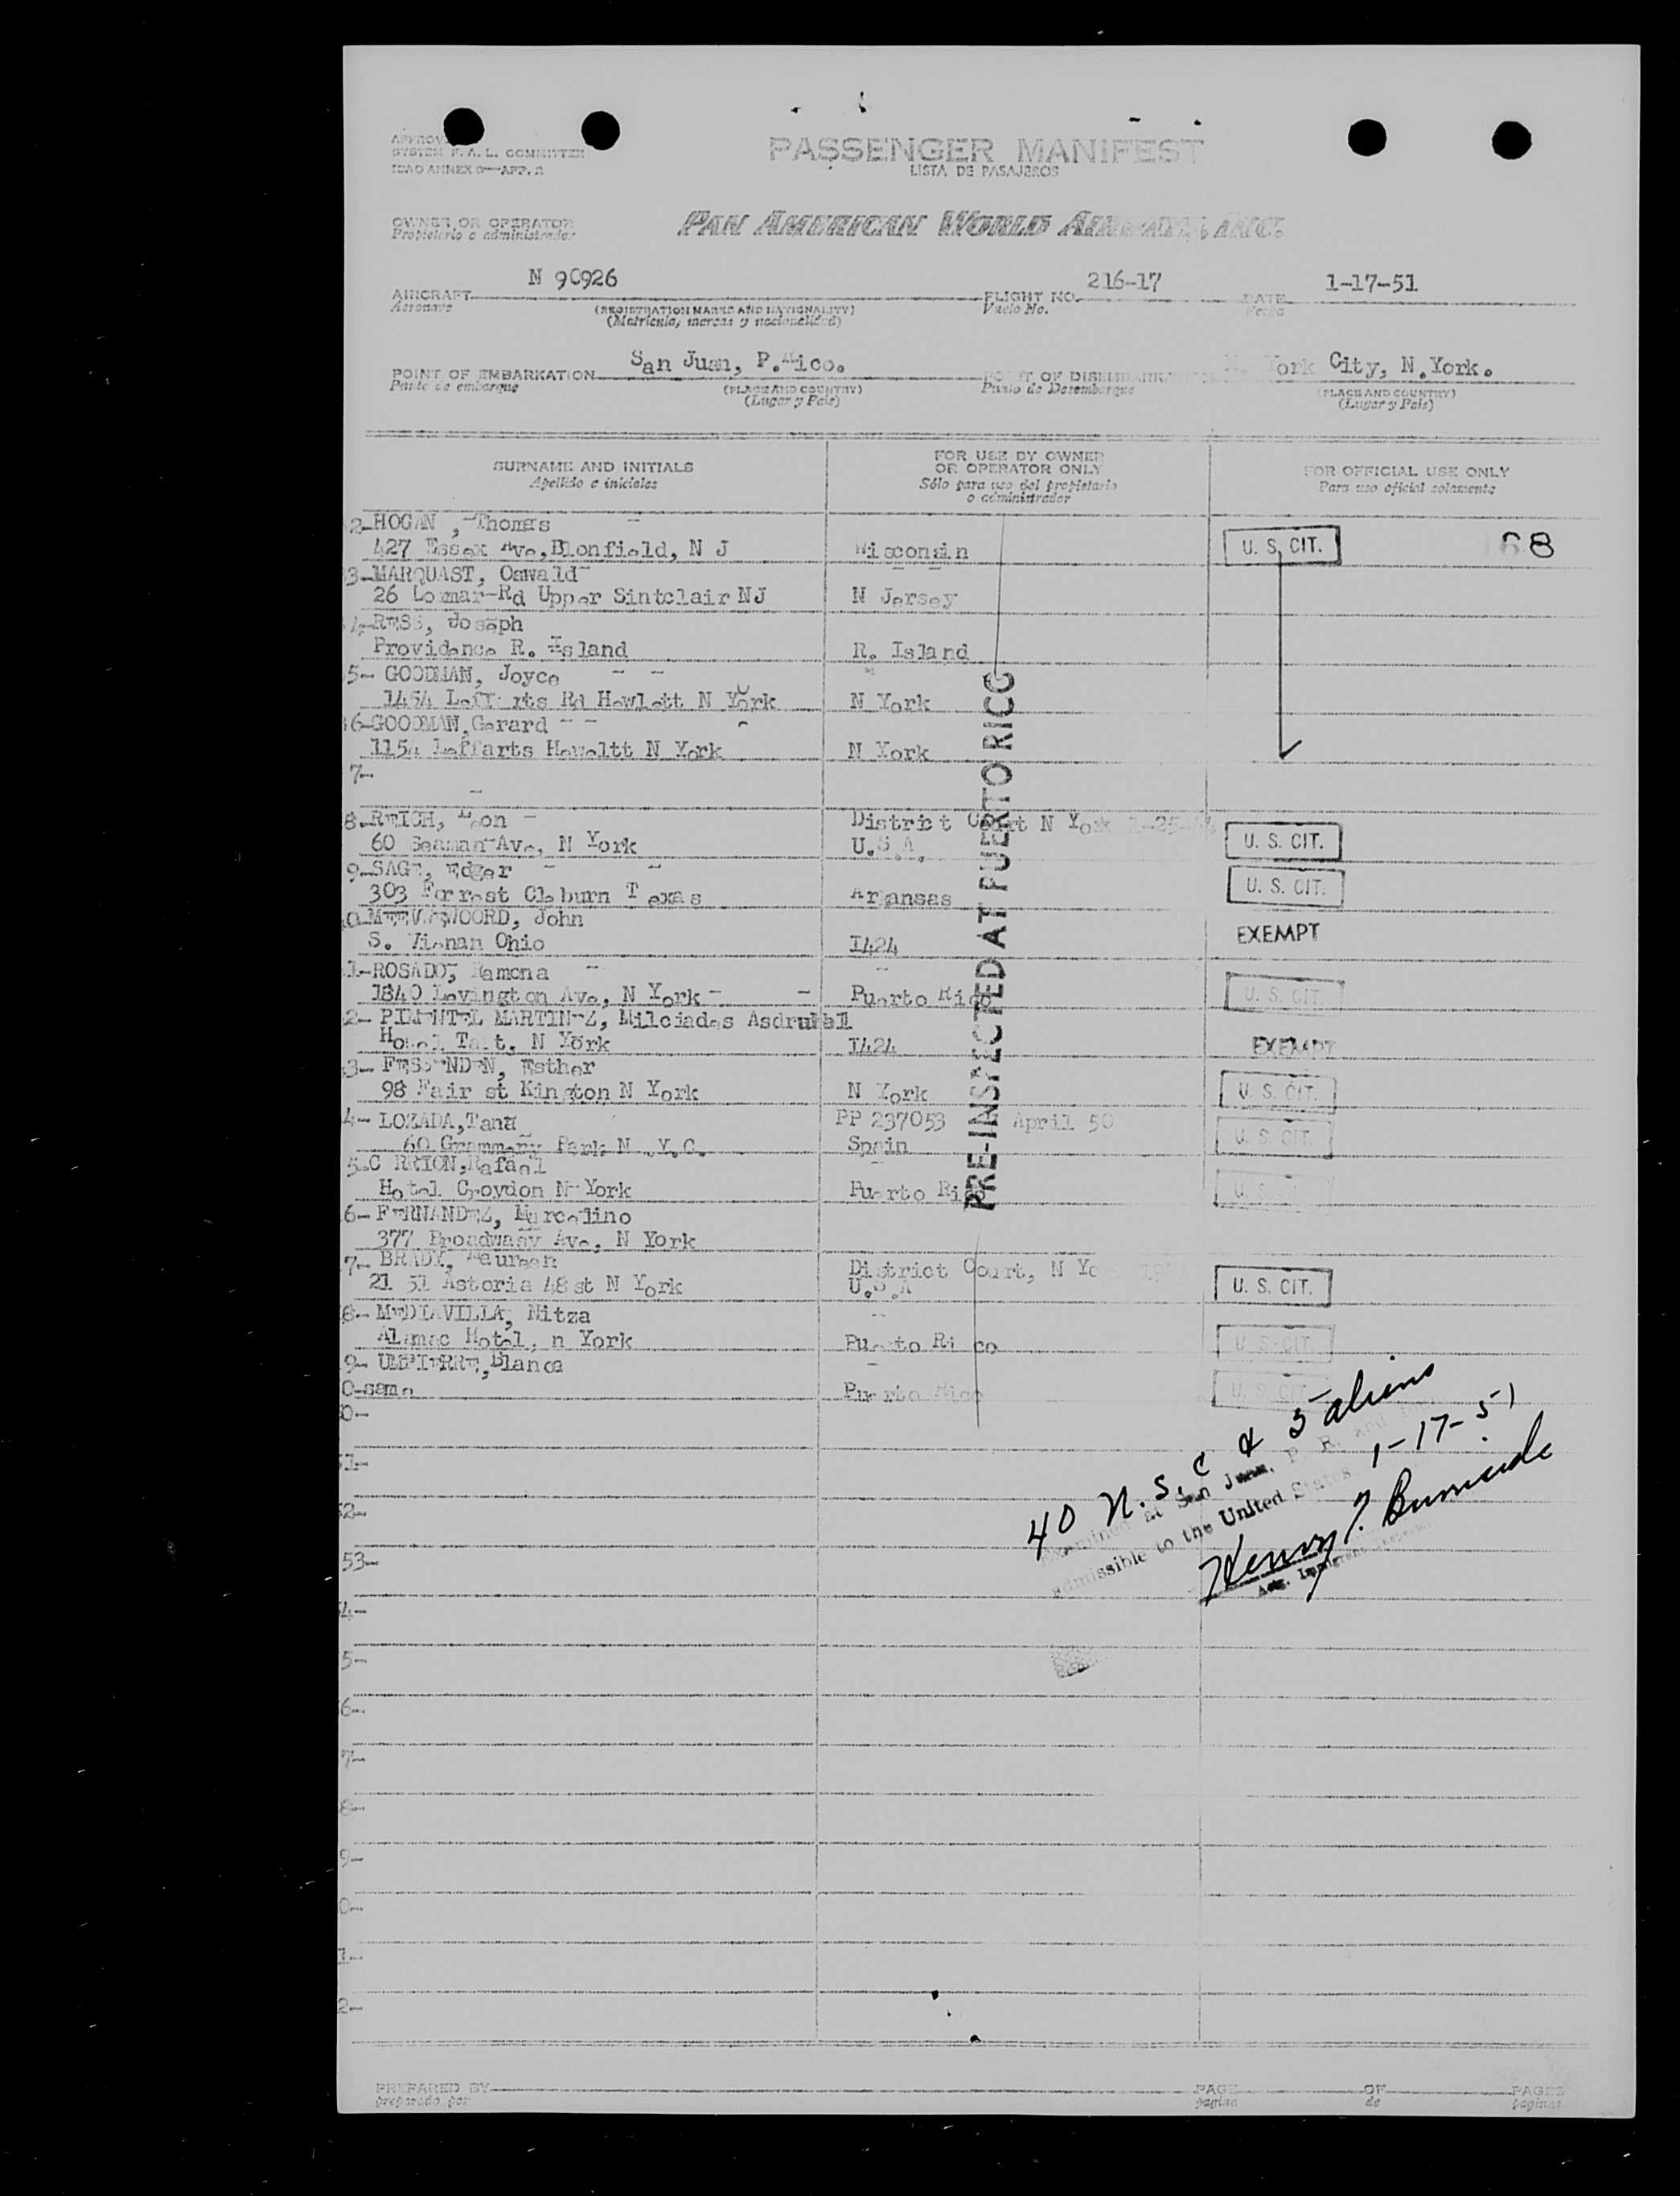 SYSTEM F. A. L. COMMITTEE
ICAO ANNEX 9—APP. 2
PASSENGER MANIFEST
LISTA DE PASAJEROS
OWNER OR OPERATOR
Propietario o administrador
PAN AMERICAN WORLD INC.
N 90926
216-17
1-17-51
AIRCRAFT
Aeronave
(REGISTRATION MARKS AND NATIONALITY)
(Matricula, marcas y nacionalidad)
FLIGHT NO.
Vuelo No.
DATE
Fecha
San Juan, P.Rico.
York City, N.York.
POINT OF EMBARKATION
Punto de embarque
(PLACE AND COUNTRY)
(Lugar y Pais)
POINT OF DISEMBARKATION
Punto de Desembarque
(PLACE AND COUNTRY)
(Lugar y Pais)
SURNAME AND INITIALS
Apellido e iniciales
FOR USE BY OWNER
OR OPERATOR ONLY
Sólo para uso del propietario
o administrador
FOR OFFICIAL USE ONLY
Para uso oficial solamente
2-HOGAN , Thomas
427 Essex Ave, Blonfield, N J
Wisconsin
U. S. CIT.
68
3-MARQUAST, Oswald
26 Rd Upper Sintclair NJ
N Jersey
4-RESS, Joseph
Providence R. Island
R. Island
5- GOODMAN, Joyce
1454 Rd Hewlett N York
N York
6-GOODMAN, Gerard
1154 Leffarts Heweltt N York
N York
7-
8-REICH, Leon
60 Seaman Ave, N York
District Court N York
U.S.A.
U. S. CIT.
9-SAGE, Edger
303 Forrest Cleburn Texas
Arkansas
U. S. CIT.
John
S. Ohio
I424
EXEMPT
1-ROSADO, Ramona
1840 Lexington Ave, N York
Puerto Rico
U. S. CIT.
2- PIMENTEL MARTINEZ, Milciades Asdrubal
Hotel Taft, N York
I424
EXEMPT
3- FESSENDEN, Esther
98 Fair st Kington N York
N York
U. S. CIT.
4- LOZADA, Tana
60 Park N .Y.C.
PP 237053 April 50
Spain
U. S. CIT.
5-C RRION, Rafael
Hotel Croydon N York
Puerto Rico
U. S.
6- FERNANDEZ, Marcelino
377 Broadwasy Ave, N York
7- BRADY, Maureen
21 51 Astoria 48 st N York
District Court, N Yo
U.S.A
U. S. CIT.
8- MEDIAVILLA, Nitza
Alamac Hotel, n York
Puerto Rico
U. S. CIT.
9- UMPIERRE, Blanca
0-same
Puerto Rico
U. S. CIT.
PRE-INSPECTED AT PUERTO RICO
0-
51-
52-
53-
4-
5-
6-
7-
8-
9-
0-
1-
2-
40 N.S.C & 5 aliens
Examined at San Juan, P. R. and
admissible to the United States
1-17-51
Henry
PREPARED BY
preparado por
PAGE
pagina
OF
de
PAGES
paginas